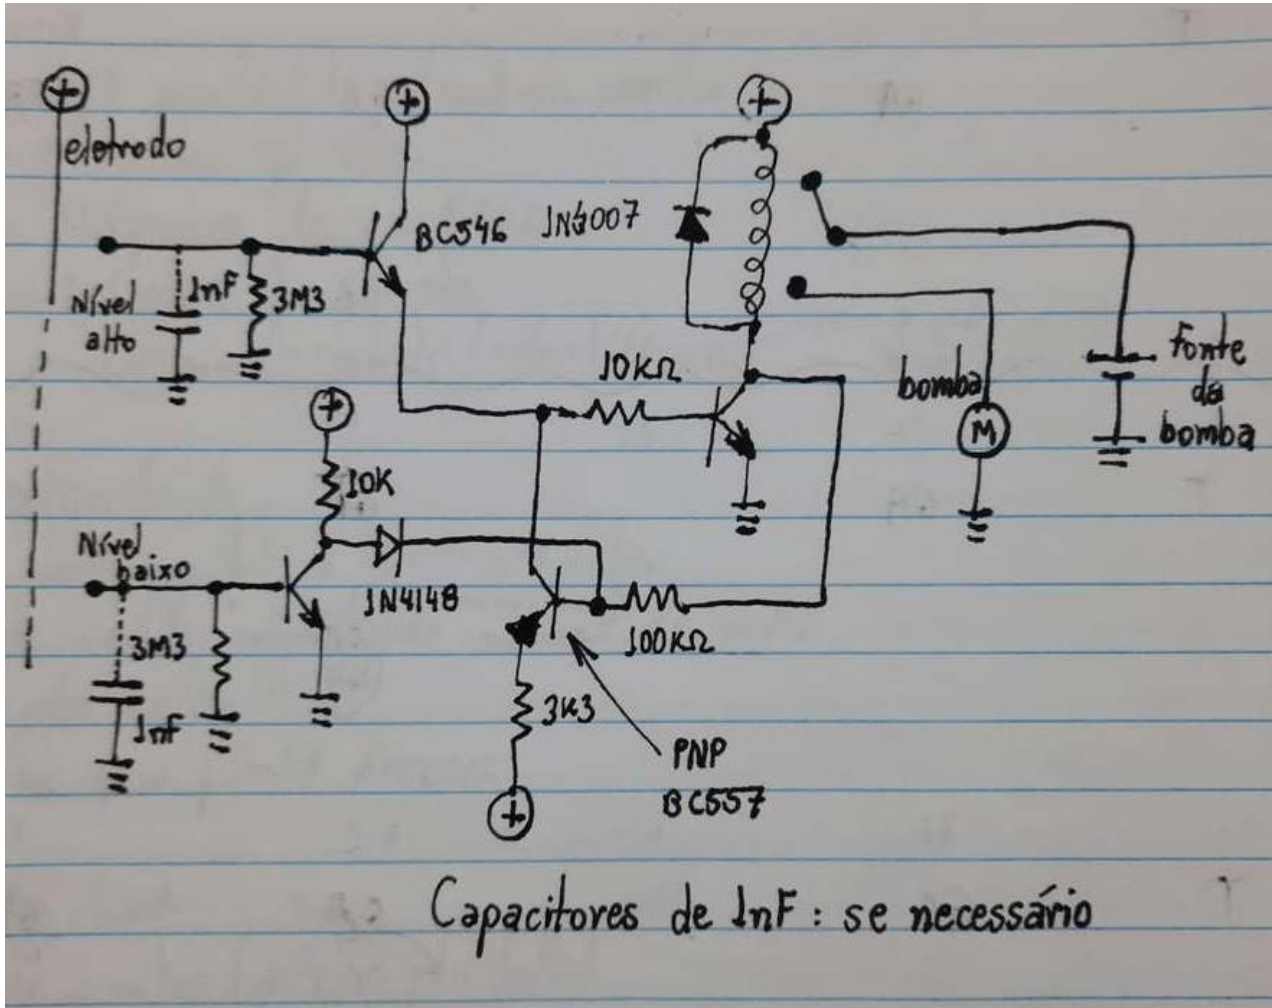 +
eletrodo
+
+
BC546
1N4007
Nível
alto
1nF
3M3
10KΩ
bomba
M
Fonte
da
bomba
+
10K
Nível
baixo
1N4148
3M3
1nF
100KΩ
3K3
PNP
BC557
+
Capacitores de 1nF: se necessário